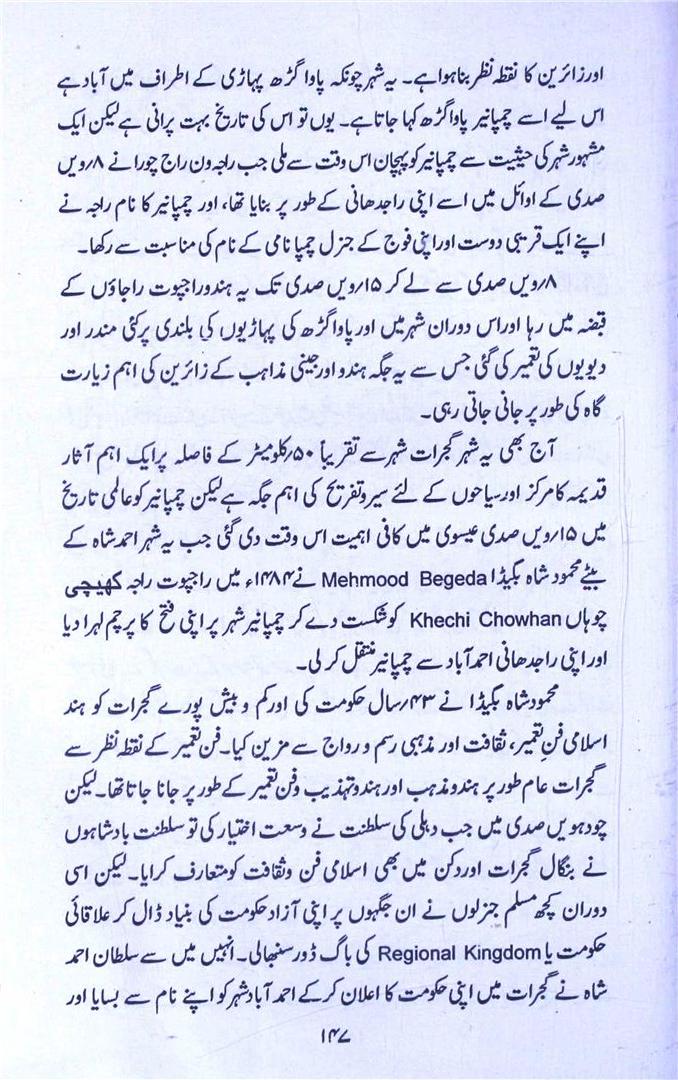 اور زائرین کا نقطہ نظر بنا ہوا ہے۔ یہ شہر چونکہ پاوا گڑھ پہاڑی کے اطراف میں آباد ہے
اس لیے اسے چمپانیر پاوا گڑھ کہا جاتا ہے۔ یوں تو اس کی تاریخ بہت پرانی ہے لیکن ایک
مشہور شہر کی حیثیت سے چمپانیر کو پہچان اس وقت سے ملی جب راجہ ون راج چورا نے ۸؍ویں
صدی کے اوائل میں اسے اپنی راجدھانی کے طور پر بنایا تھا، اور چمپانیر کا نام راجہ نے
اپنے ایک قریبی دوست اور اپنی فوج کے جنرل چمپا نامی کے نام کی مناسبت سے رکھا۔
۸؍ویں صدی سے لے کر ۱۵؍ویں صدی تک یہ ہندو راجپوت راجاؤں کے
قبضہ میں رہا اور اس دوران شہر میں اور پاوا گڑھ کی پہاڑیوں کی بلندی پر کئی مندر اور
دیویوں کی تعمیر کی گئی جس سے یہ جگہ ہندو اور جینی مذاہب کے زائرین کی اہم زیارت
گاہ کی طور پر جانی جاتی رہی۔
آج بھی یہ شہر گجرات شہر سے تقریباً ۵۰؍کلومیٹر کے فاصلہ پر ایک اہم آثار
قدیمہ کا مرکز اور سیاحوں کے لئے سیر و تفریح کی اہم جگہ ہے لیکن چمپانیر کو عالمی تاریخ
میں ۱۵؍ویں صدی عیسوی میں کافی اہمیت اس وقت دی گئی جب یہ شہر احمد شاہ کے
بیٹے محمود شاہ بگیڈا Mehmood Begeda نے ۱۴۸۴ء میں راجپوت راجہ کھیچی
چوہاں Khechi Chowhan کو شکست دے کر چمپانیر شہر پر اپنی فتح کا پرچم لہرا دیا
اور اپنی راجدھانی احمد آباد سے چمپانیر منتقل کر لی۔
محمود شاہ بگیڈا نے ۴۳؍سال حکومت کی اور کم و بیش پورے گجرات کو ہند
اسلامی فنِ تعمیر، ثقافت اور مذہبی رسم و رواج سے مزین کیا۔ فن تعمیر کے نقطہ نظر سے
گجرات عام طور پر ہندو مذہب اور ہندو تہذیب و فن تعمیر کے طور پر جانا جاتا تھا۔ لیکن
چودہویں صدی میں جب دہلی کی سلطنت نے وسعت اختیار کی تو سلطنت بادشاہوں
نے بنگال گجرات اور دکن میں بھی اسلامی فن و ثقافت کو متعارف کرایا۔ لیکن اسی
دوران کچھ مسلم جنرلوں نے ان جگہوں پر اپنی آزاد حکومت کی بنیاد ڈال کر علاقائی
حکومت یا Regional Kingdom کی باگ ڈور سنبھالی۔ انہیں میں سے سلطان احمد
شاہ نے گجرات میں اپنی حکومت کا اعلان کر کے احمد آباد شہر کو اپنے نام سے بسایا اور
۱۴۷